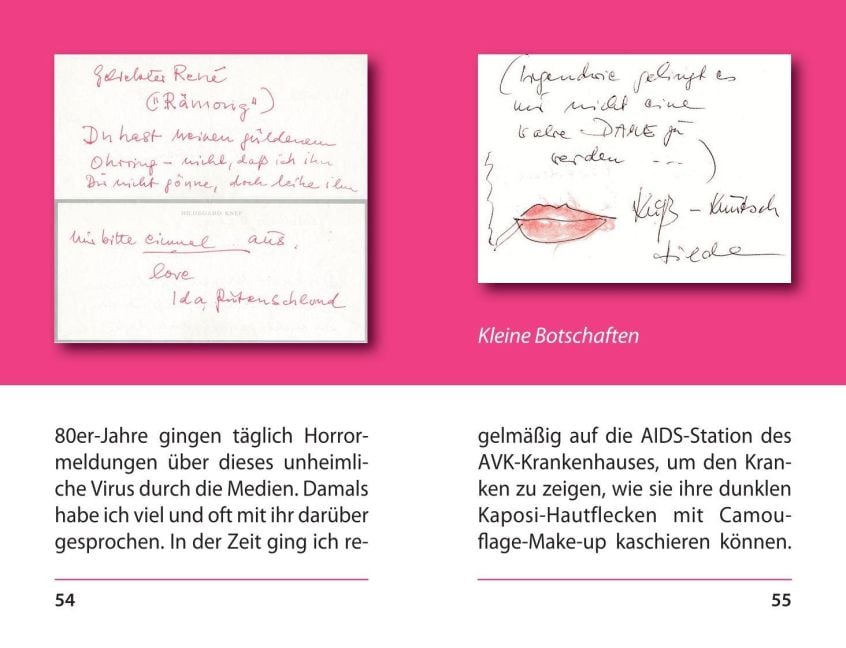 Geliebter René
("Rämong")
Du hast meinen güldenen
Ohrring – nicht, daß ich ihn
Du nicht gönne, doch leihe ihn
HILDEGARD KNEF
mir bitte einmal aus.
love
Ida, Rutenschlund
(Irgendwie gelingt es
mir nicht eine
wahre DAME zu
werden ---)
Kuß – Knutsch
Hilde
Kleine Botschaften
80er-Jahre gingen täglich Horror-
meldungen über dieses unheimli-
che Virus durch die Medien. Damals
habe ich viel und oft mit ihr darüber
gesprochen. In der Zeit ging ich re-
54
gelmäßig auf die AIDS-Station des
AVK-Krankenhauses, um den Kran-
ken zu zeigen, wie sie ihre dunklen
Kaposi-Hautflecken mit Camou-
flage-Make-up kaschieren können.
55